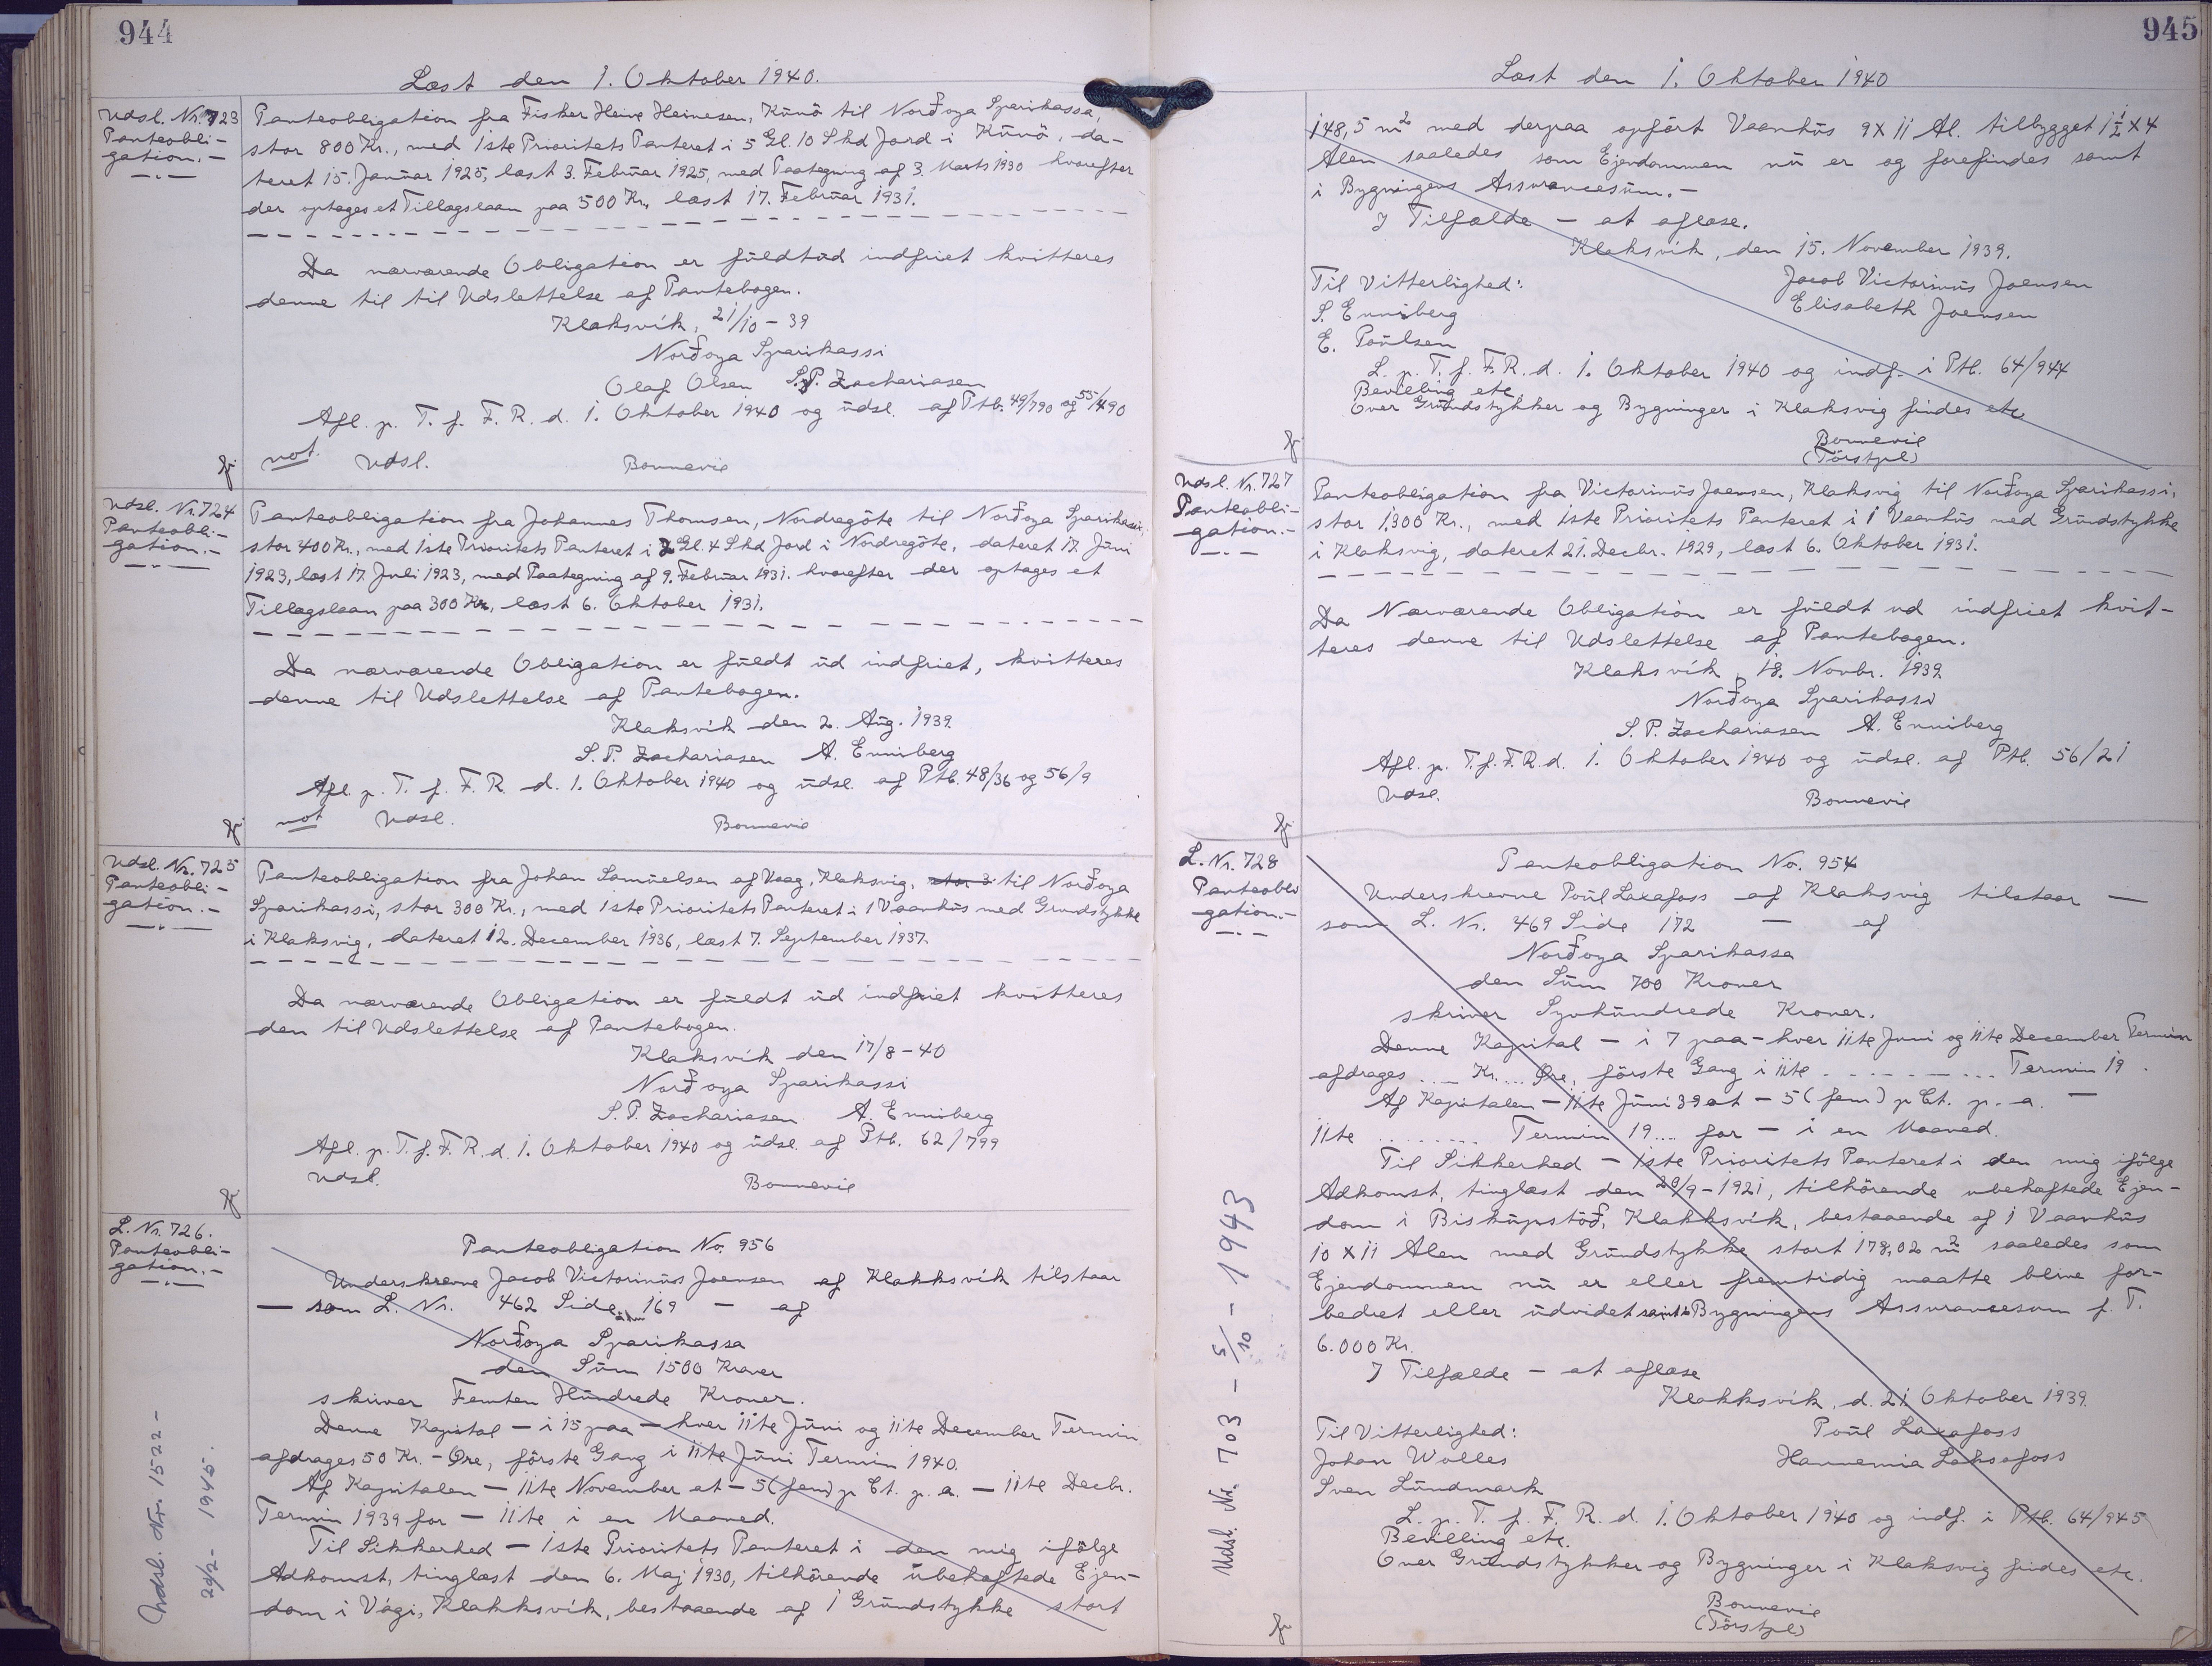 944
Læst den 1. Oktober 1940.
Udsl. Nr. 723
Panteobli-
gation.-
Panteobligation fra Fisker Heine Heinesen, Kunö til Norðoya Sparikassa,
stor 800 Kr., med 1ste Prioritets Panteret i 5 Gl. 10 Skd Jord i Kunö, da-
teret 15. Januar 1925, læst 3. Februar 1925, med Paategning af 3. Marts 1930 hvorefter
der optages et Tillægslaan paa 500 Kr., læst 17. Februar 1931.
Da nærværende Obligation er fuldtud indfriet kvitteres
denne til til Udslettelse af Pantebogen.
Klaksvík, 21/10 - 39
Norðoya Sparikassi
Olaf Olsen S.P. Zachariasen
Afl. p. T. f. F. R. d. 1. Oktober 1940 og udsl. af Ptb. 49/790 og 55/490
not. Udsl. Bonnevie
Udsl. Nr. 724
Panteobli-
gation.-
Panteobligation fra Johannes Thomsen, Nordregöte til Norðoya Sparikassi,
stor 400 Kr., med 1ste Prioritets Panteret i 2 Gl. 4 Skd Jord i Nordregöte, dateret 17. Juni
1923, læst 17. Juli 1923, med Paategning af 9. Februar 1931. hvorefter der optages et
Tillægslaan paa 300 Kr., læst 6. Oktober 1931.
Da nærværende Obligation er fuldt ud indfriet, kvitteres
denne til Udslettelse af Pantebogen.
Klaksvík den 2. Aug. 1939
S.P. Zachariasen A. Enniberg
Afl. p. T. f. F. R. d. 1. Oktober 1940 og udsl. af Ptb. 48/36 og 56/9
not Udsl. Bonnevie
Udsl. Nr. 725
Panteobli-
gation.-
Panteobligation fra Johan Samuelsen af Vaag, Klaksvig, stor 3 til Norðoya
Sparikassi, stor 300 Kr., med 1ste Prioritets Panteret i 1 Vaanhus med Grundstykke
i Klaksvig, dateret 12. December 1936, læst 7. September 1937.
Da nærværende Obligation er fuldt ud indfriet kvitteres
den til Udslettelse af Pantebogen.
Klaksvík den 17/8 - 40
Norðoya Sparikassi
S.P. Zachariasen A. Enniberg
Afl. p. T. f. F. R. d. 1. Oktober 1940 og udsl. af Ptb. 62/799
Udsl. Bonnevie
L. Nr. 726.
Panteobli-
gation.-
Panteobligation No. 956
Underskrevne Jacob Victorinus Joensen af Klakksvík tilstaar
— som L. Nr. 462 Side 169 — af
Norðoya Sparikassa
den Sum 1500 Kroner
skriver Femten Hundrede Kroner.
Denne Kapital — i 15 paa — hver 11te Juni og 11te December Termin
afdrages 50 Kr. - Øre, förste Gang i 11te Juni Termin 1940.
Af Kapitalen — 11te November at — 5 (fem) p Ct. p. a. — 11te Decbr.
Termin 1939 for — 11te i en Maaned.
Til Sikkerhed — 1ste Prioritets Panteret i den mig ifölge
Adkomst, tinglæst den 6. Maj 1930, tilhörende ubehæftede Ejen-
dom i Vági, Klakksvík, bestaaende af 1 Grundstykke stort
Udsl. Nr. 1522 -
20/2 - 1945.
945
Læst den 1. Oktober 1940
148,5 m2 med derpaa opfört Vaanhus 9 X 11 Al. tilbygget 1 1/2 X 4
Alen saaledes som Ejendommen nu er og forefindes samt
i Bygningens Assurancesum.-
I Tilfælde — at aflæse.
Klaksvík, den 15. November 1939.
Til Vitterlighed: Jacob Victorinus Joensen
S. Enniberg Elisabeth Joensen
E. Poulsen
L. p. T. f. F. R. d. 1. Oktober 1940 og indf. i Ptb. 64/944
Bevilling etc
Over Grundstykker og Bygninger i Klaksvig findes etc
Bonnevie
Udsl. Nr. 727
Panteobli-
gation.-
Panteobligation fra Victorinus Joensen, Klaksvig til Norðoya Sparikassi,
stor 1300 Kr., med 1ste Prioritets Panteret i 1 Vaanhus med Grundstykke
i Klaksvig, dateret 21. Decbr. 1929, læst 6. Oktober 1931.
Da Nærværende Obligation er fuldt ud indfriet kvit-
teres denne til Udslettelse af Pantebogen.
Klaksvík, 18. Novbr. 1939
Norðoya Sparikassi
S.P. Zachariasen A. Enniberg
Afl. p. T. f. F. R. d. 1. Oktober 1940 og udsl. af Ptb. 56/21
Udsl. Bonnevie
L. Nr. 728
Panteobli
gation.-
Panteobligation No. 954
Underskrevne Poul Laxafoss af Klaksvig tilstaar —
som L. Nr. 469 Side 172 — af
Norðoya Sparikassa
den Sum 700 Kroner
skriver Syvhundrede Kroner.
Denne Kapital — i 7 paa — hver 11te Juni og 11te December Termin
afdrages .... Kr. ... Øre, förste Gang i 11te ........ Termin 19 .
Af Kapitalen — 11te Juni 39 at — 5 (fem) p Ct. p. a. —
11te ........ Termin 19.... for — i en Maaned.
Til Sikkerhed — 1ste Prioritets Panteret i den mig ifölge
Adkomst, tinglæst den 20/9 - 1921, tilhörende ubehæftede Ejen-
dom i Biskupstöð, Klakksvík, bestaaende af 1 Vaanhus
10 X 11 Alen med Grundstykke stort 178,02 m2 saaledes som
Ejendommen nu er eller fremtidig maatte blive for-
bedret eller udvidet samt i Bygningens Assurancesum f. T.
6.000 Kr.
I Tilfælde — at aflæse
Klakksvík, d. 21 Oktober 1939.
Til Vitterlighed: Poul Laxafoss
Johan Wolles Hannemia Laksafoss
Sven Lundmark
L. p. T. f. F. R. d. 1. Oktober 1940 og indf. i Ptb. 64/945
Bevilling etc.
Over Grundstykker og Bygninger i Klaksvig findes etc.
Bonnevie
Udsl. Nr. 703 - 5/10 - 1943